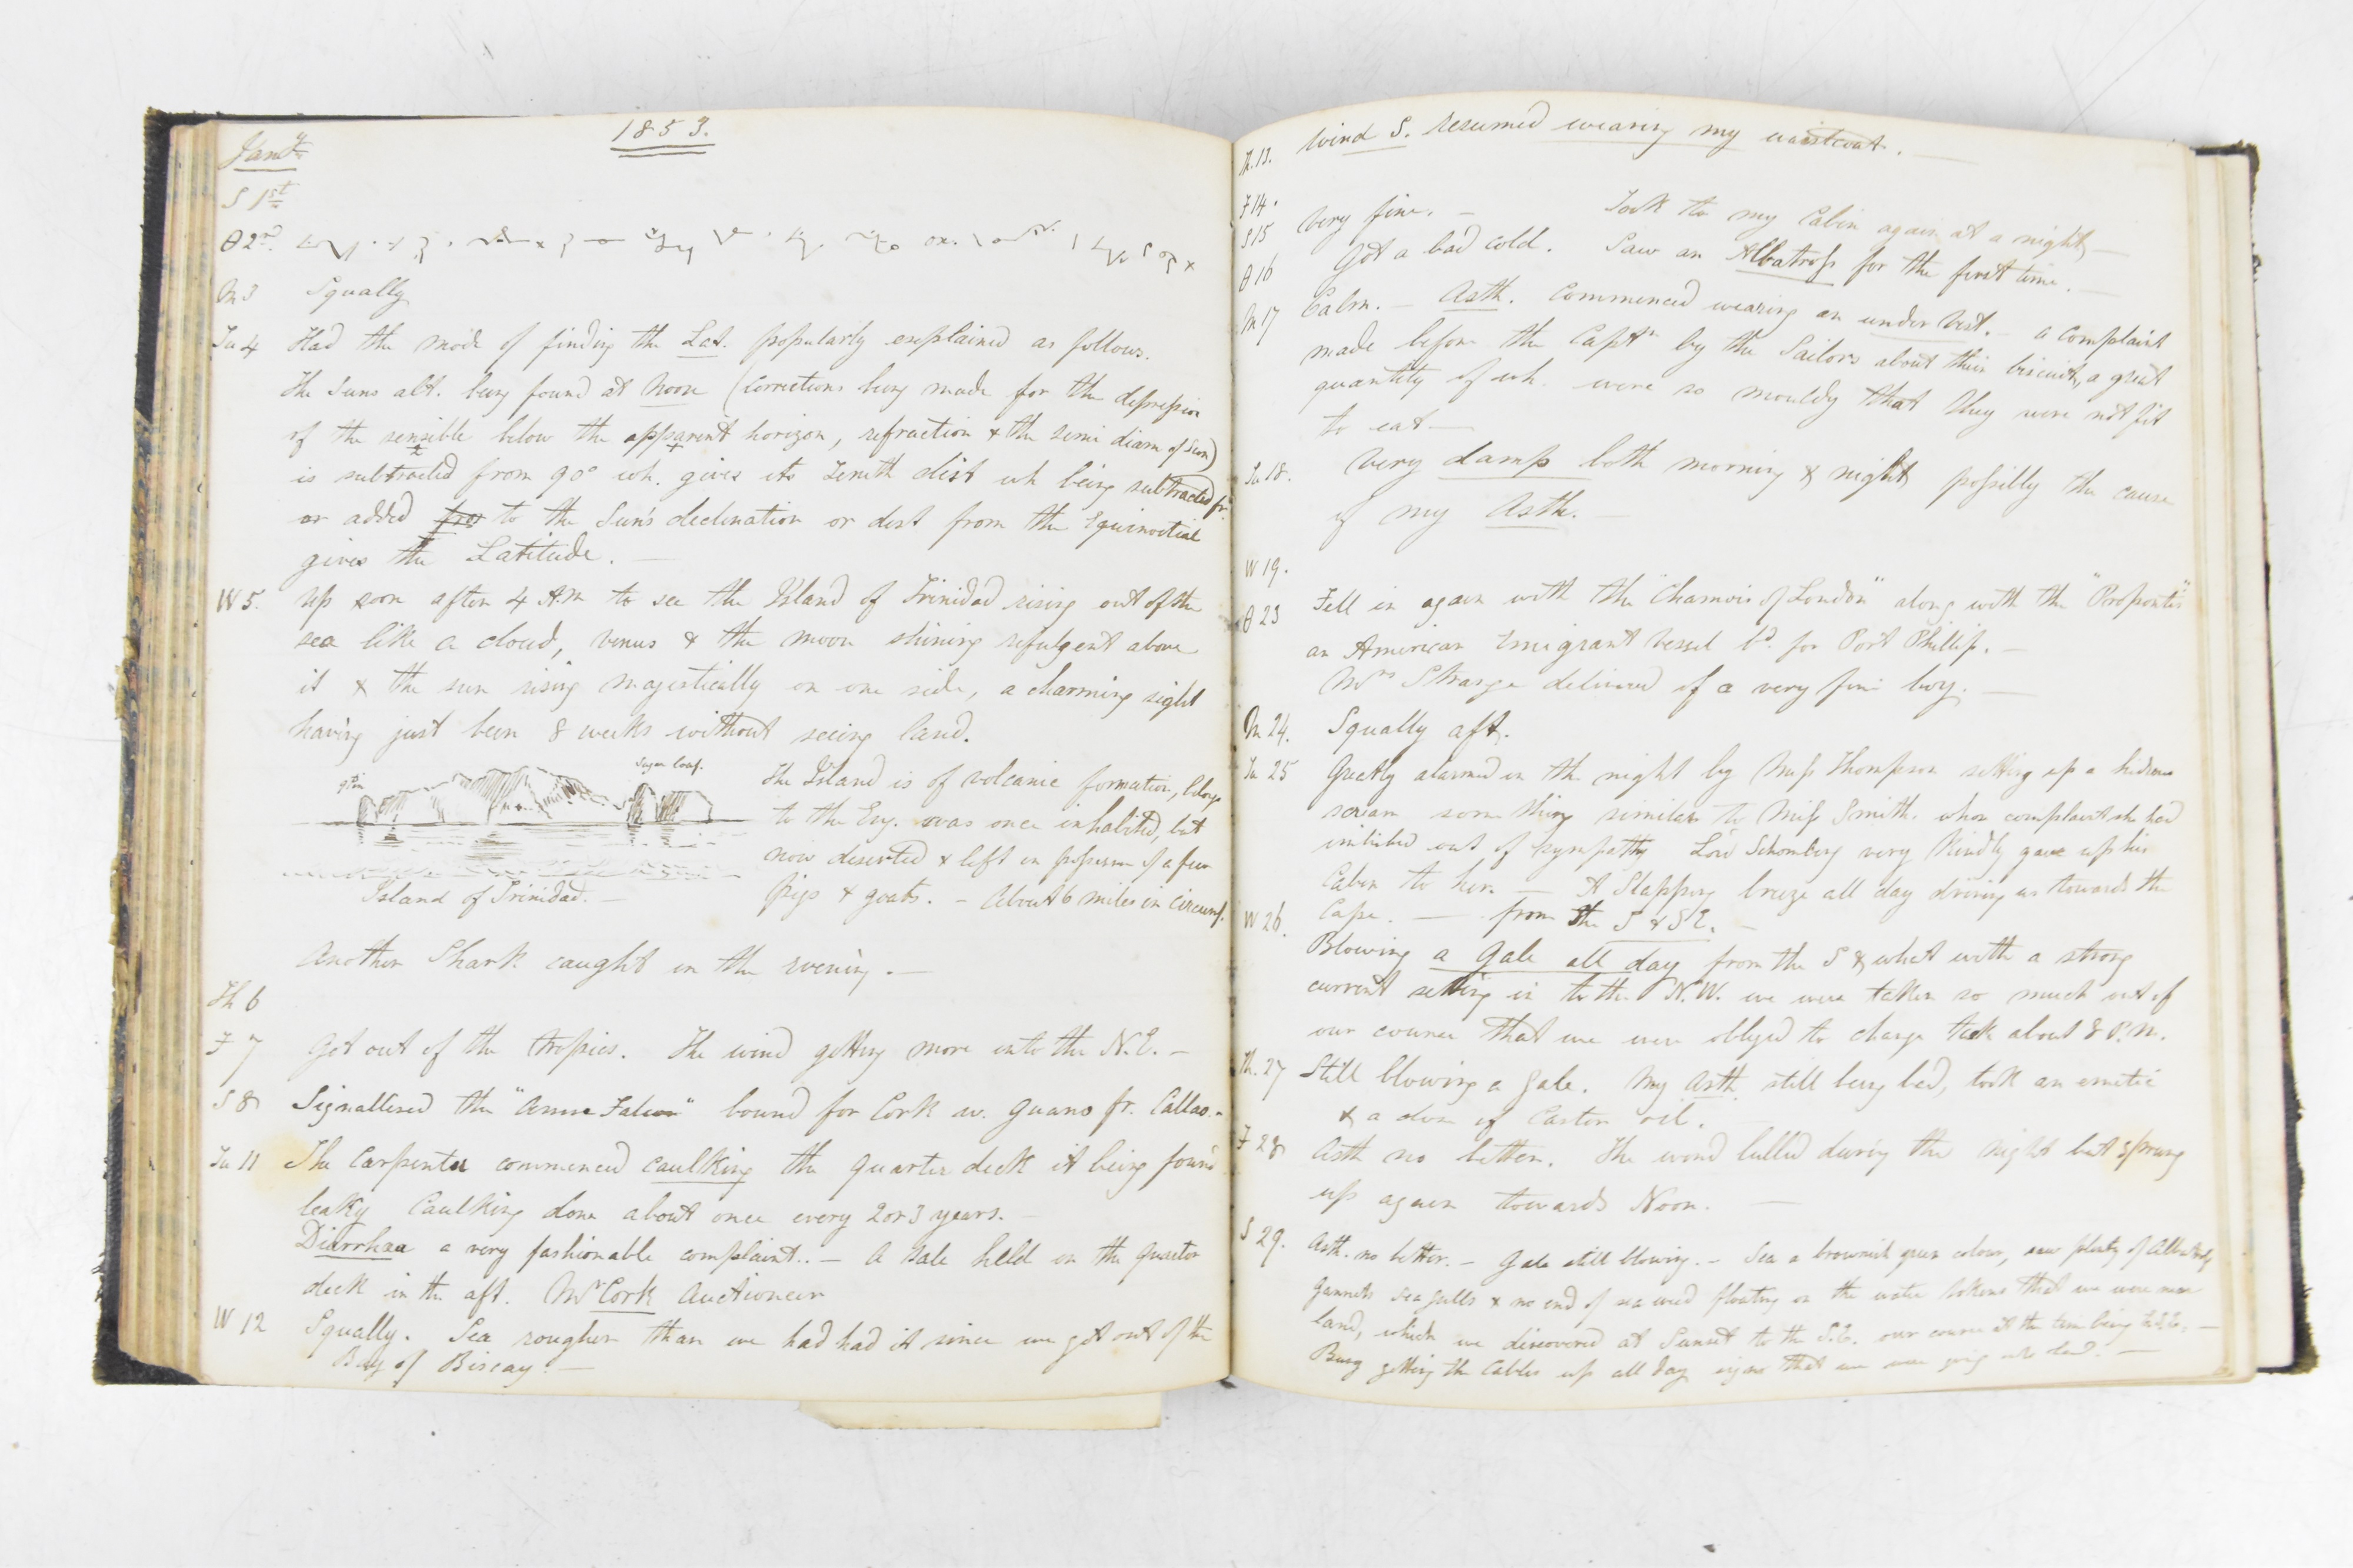 1853.
Jany.
S 1st
θ 2nd.
M 3 Squally
Tu 4 Had the mode of finding the Lat. popularly explained as follows.
The Suns alt. being found at Noon (corrections being made for the depression
of the sensible below the apparent horizon, refraction & the semi diam of Sun)
is subtracted from 90° wh. gives its Zenith dist wh being subtracted fr.
or added to the Sun's declination or dist from the Equinoctial
gives the Latitude. —
W 5. Up soon after 4 A.M to see the Island of Trinidad rising out of the
sea like a cloud, venus & the moon shining refulgent above
it & the sun rising majestically on one side, a charming sight
having just been 8 weeks without seeing land.
Sugar loaf.
The Island is of volcanic formation, belongs
to the Eng. was once inhabited, but
now deserted & left in possession of a few
pigs & goats. — About 6 miles in circumf.
Island of Trinidad. —
Another Shark caught in the evening. —
Th 6
F 7 Got out of the tropics. The wind getting more into the N.E. —
S 8 Signallised the "Anne Falcon" bound for Cork w. guano fr. Callao. —
Tu 11 The Carpenter commenced caulking the quarter deck it being found
leaky Caulking done about once every 2 or 3 years. —
Diarrhæa a very fashionable complaint.. — A Sale held on the quarter
deck in the aft. Mr Cork Auctioneer
W 12 Squally. Sea rougher than we had had it since we got out of the
Bay of Biscay. —
Th. 13. Wind S. Resumed wearing my waistcoat. —
F 14.
S 15 Very fine. — Took to my Cabin again at a night, —
θ 16 Got a bad cold. Saw an Albatross for the first time. —
M 17 Calm. — Asth. Commenced wearing an under vest. — a complaint
made before the Captn by the Sailors about their biscuit, a great
quantity of wh. were so mouldy that they were not fit
to eat —
Tu 18. Very damp both morning & night possibly the cause
of my Asth. —
W 19.
θ 23 Fell in again with the "Chamois of London" along with the "Propontis"
an American Emigrant vessel bd. for Port Phillip. —
Mrs Strange delivered of a very fine boy. —
M 24. Squally aft.
Tu 25 Greatly alarmed in the night by Miss Thompson setting up a hideous
scream something similar to Miss Smith. whose complaint she had
imbibed out of sympathy Lord Schomberg very kindly gave up his
Cabin to her. — A Slapping breeze all day driving us towards the
Cape. — from the S & SE. —
W 26. Blowing a gale all day from the S & what with a strong
current setting in to the N.W. we were taken so much out of
our course that we were obliged to change tack about 8 P.M.
Th. 27 Still blowing a gale. My Asth. still being bad, took an emetic
& a dose of Castor oil.
F 28 Asth no better. The wind lulled during the night but sprung
up again towards Noon. —
S 29. Asth. no better. — Gale still blowing. — Sea a brownish green colour, saw plenty of
Gannets sea gulls & no end of sea weed floating on the water tokens that we were near
land, which we discovered at Sunset to the S.E. our course at the time being —
Busy getting the Cables up all day signs that we were land. —